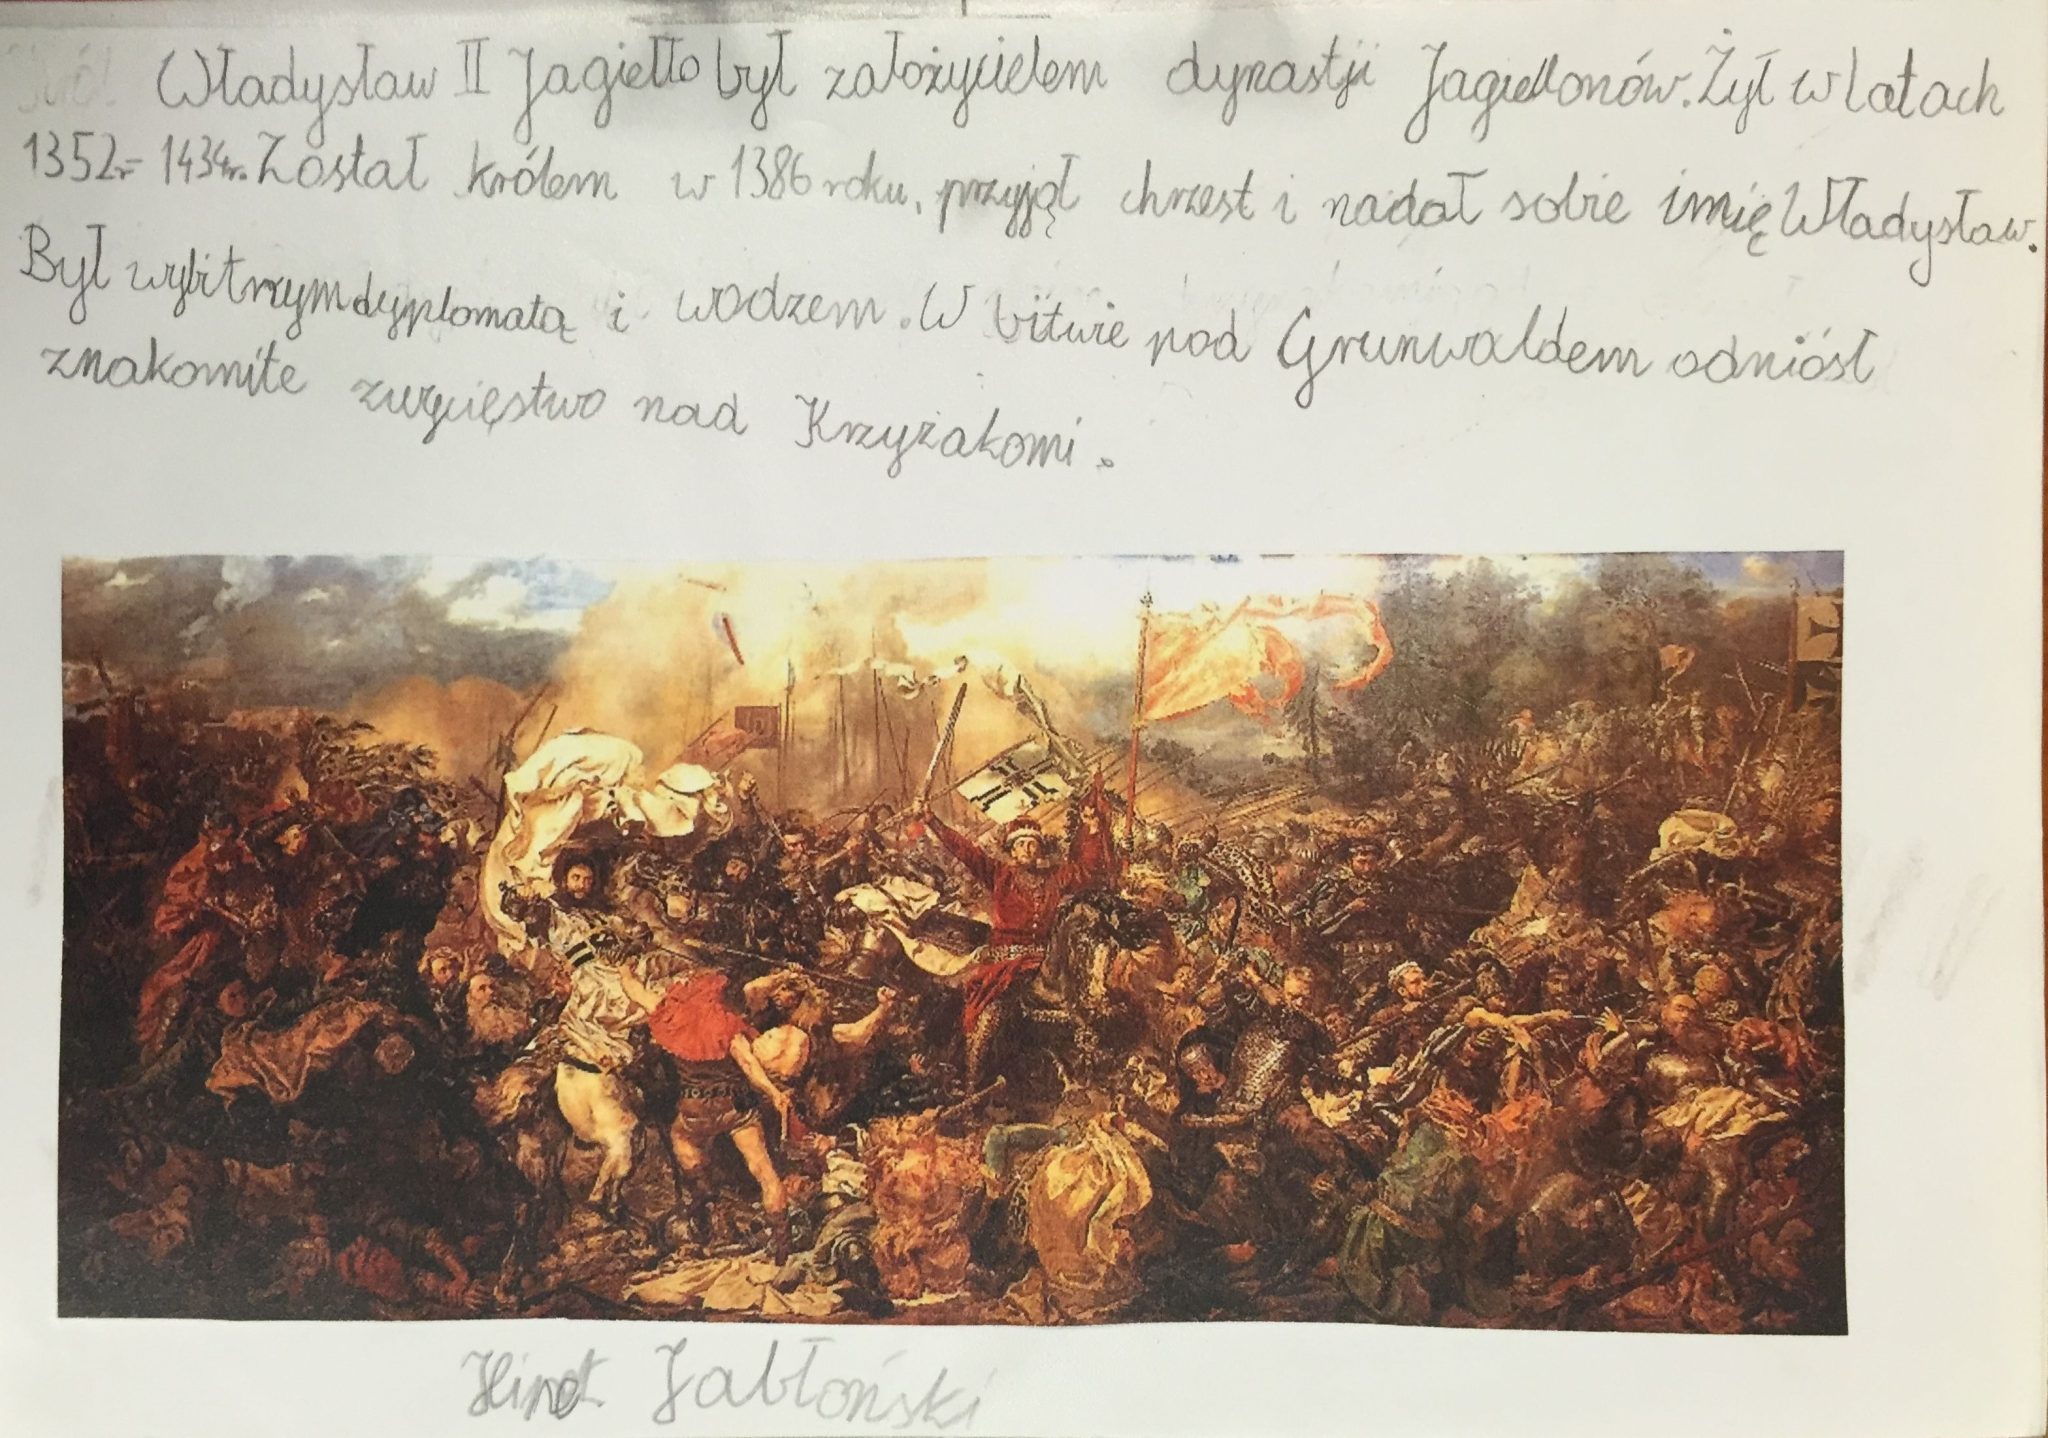 Władysław II Jagiełło był założycielem dynastji Jagiellonów. Żył w latach
1352r.- 1434r. Został królem w 1386 roku, przyjął chrzest i nadał sobie imię Władysław.
Był wybitnym dyplomatą i wodzem. W bitwie pod Grunwaldem odniósł
znakomite zwycięstwo nad Krzyżakami.
Jabłoński